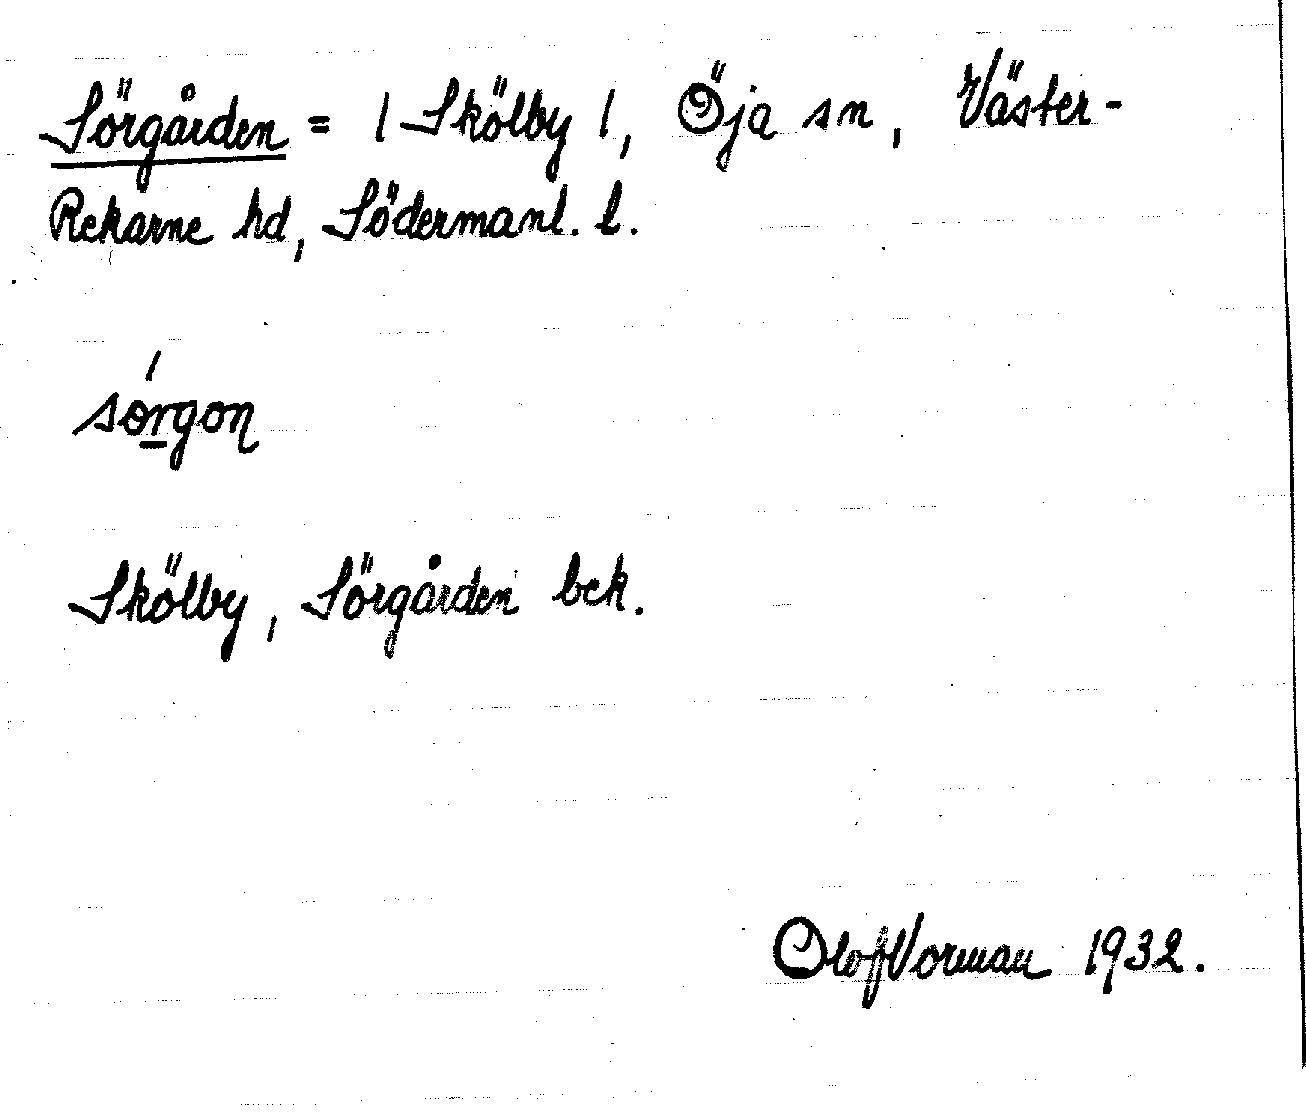 Sörgården = | Skölby |, Öja sn, Väster-
Rekarne hd, Södermanl. l.
sörgon
Skölby, Sörgården bek.
Olof Vorman 1932.